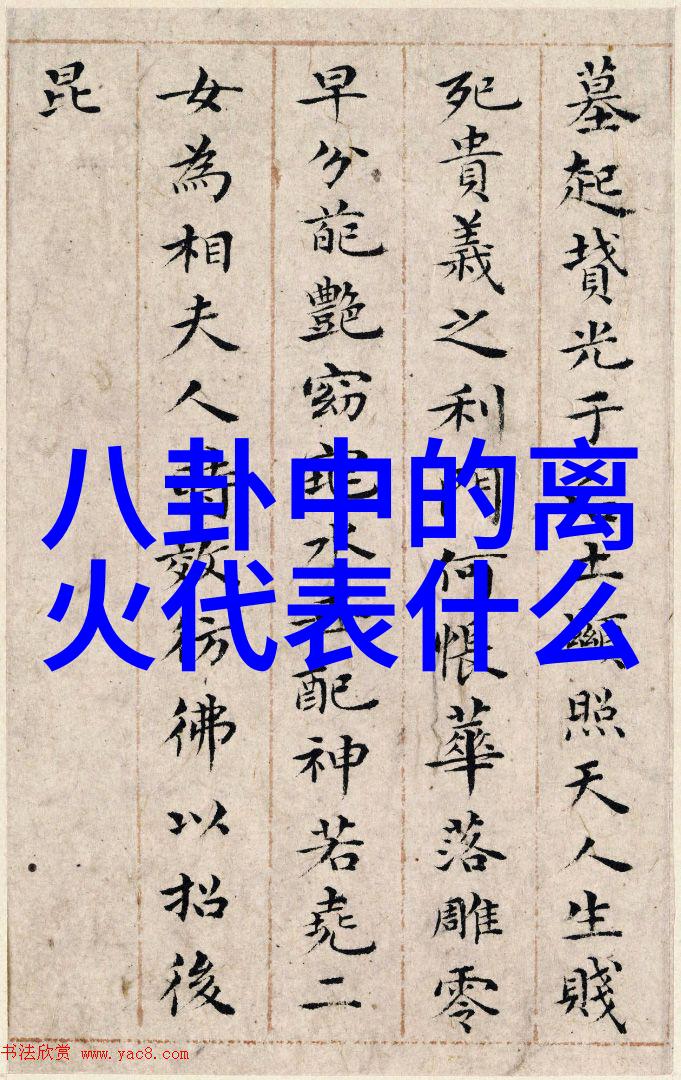 八卦中的离
火代表什么
墓起光于土顯照天人生賤
死貴義之利何悵華落雕零
早分葩艷窈水配神若堯二
女為相夫人時效彷彿以招後
昆
书法欣赏 www.yac8.com